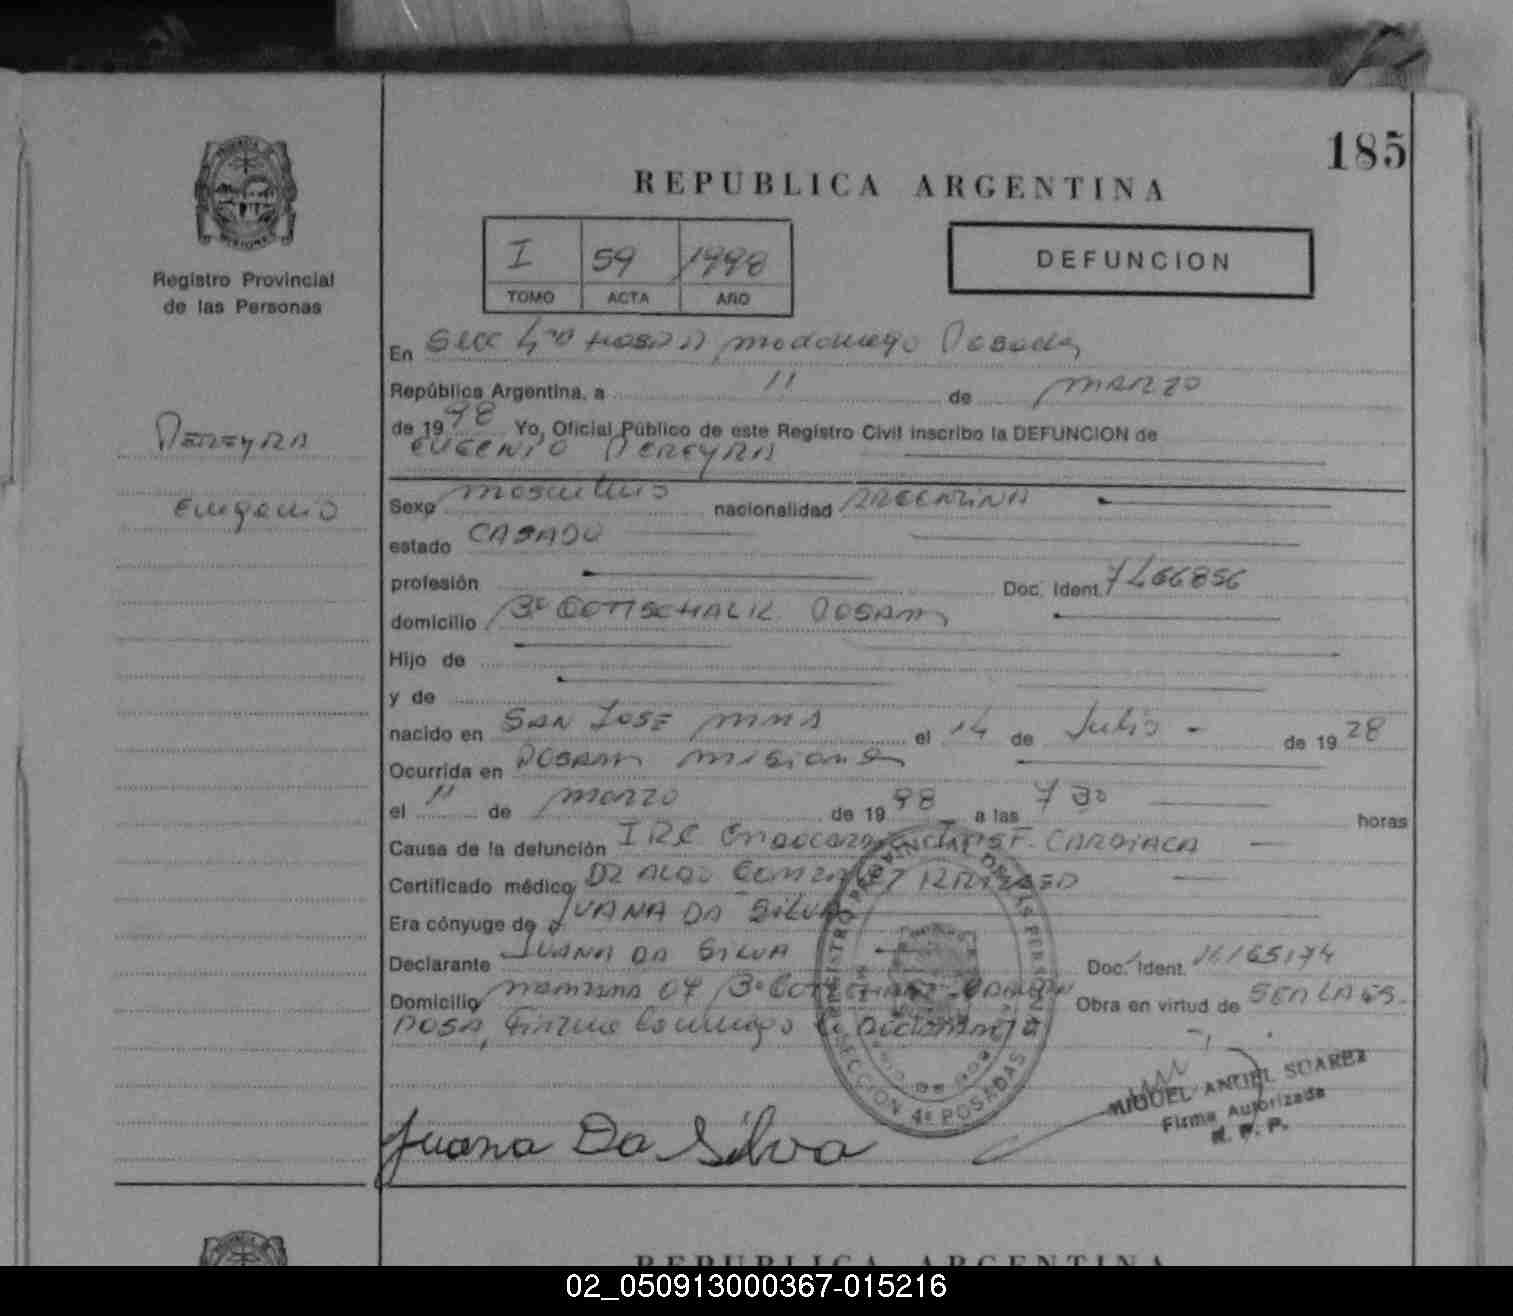 185
REPUBLICA ARGENTINA
Registro Provincial
de las Personas
I 59 1998
TOMO ACTA AÑO
DEFUNCION
En Secc 4ta Posadas
República Argentina, a 11 de MARZO
de 1998 Yo, Oficial Público de este Registro Civil inscribo la DEFUNCION de
EUGENIO PEREYRA
PEREYRA
Eugenio
Sexo masculino nacionalidad ARGENTINA
estado CASADO
profesión Doc. Ident. 7466856
domicilio Bº GOTTSCHALK POSADAS
Hijo de
y de
nacido en SAN JOSE MNES el 14 de Julio - de 1928
Ocurrida en POSADAS MISIONES
el 11 de marzo de 1998 a las 7 30 horas
Causa de la defunción IRC INSF. CARDIACA
Certificado médico DR ALDO
Era cónyuge de JUANA DA SILVA
Declarante JUANA DA SILVA Doc. Ident. 16165174
Domicilio manzana 07 Bº Obra en virtud de SER LA ES-
POSA, Firma conmigo la declarante
REGISTRO PROVINCIAL DE LAS PERSONAS
SECCION 4ª POSADAS
MIGUEL ANGEL SUAREZ
Firma Autorizada
R. P. P.
Juana Da Silva
REPUBLICA ARGENTINA
02_050913000367-015216